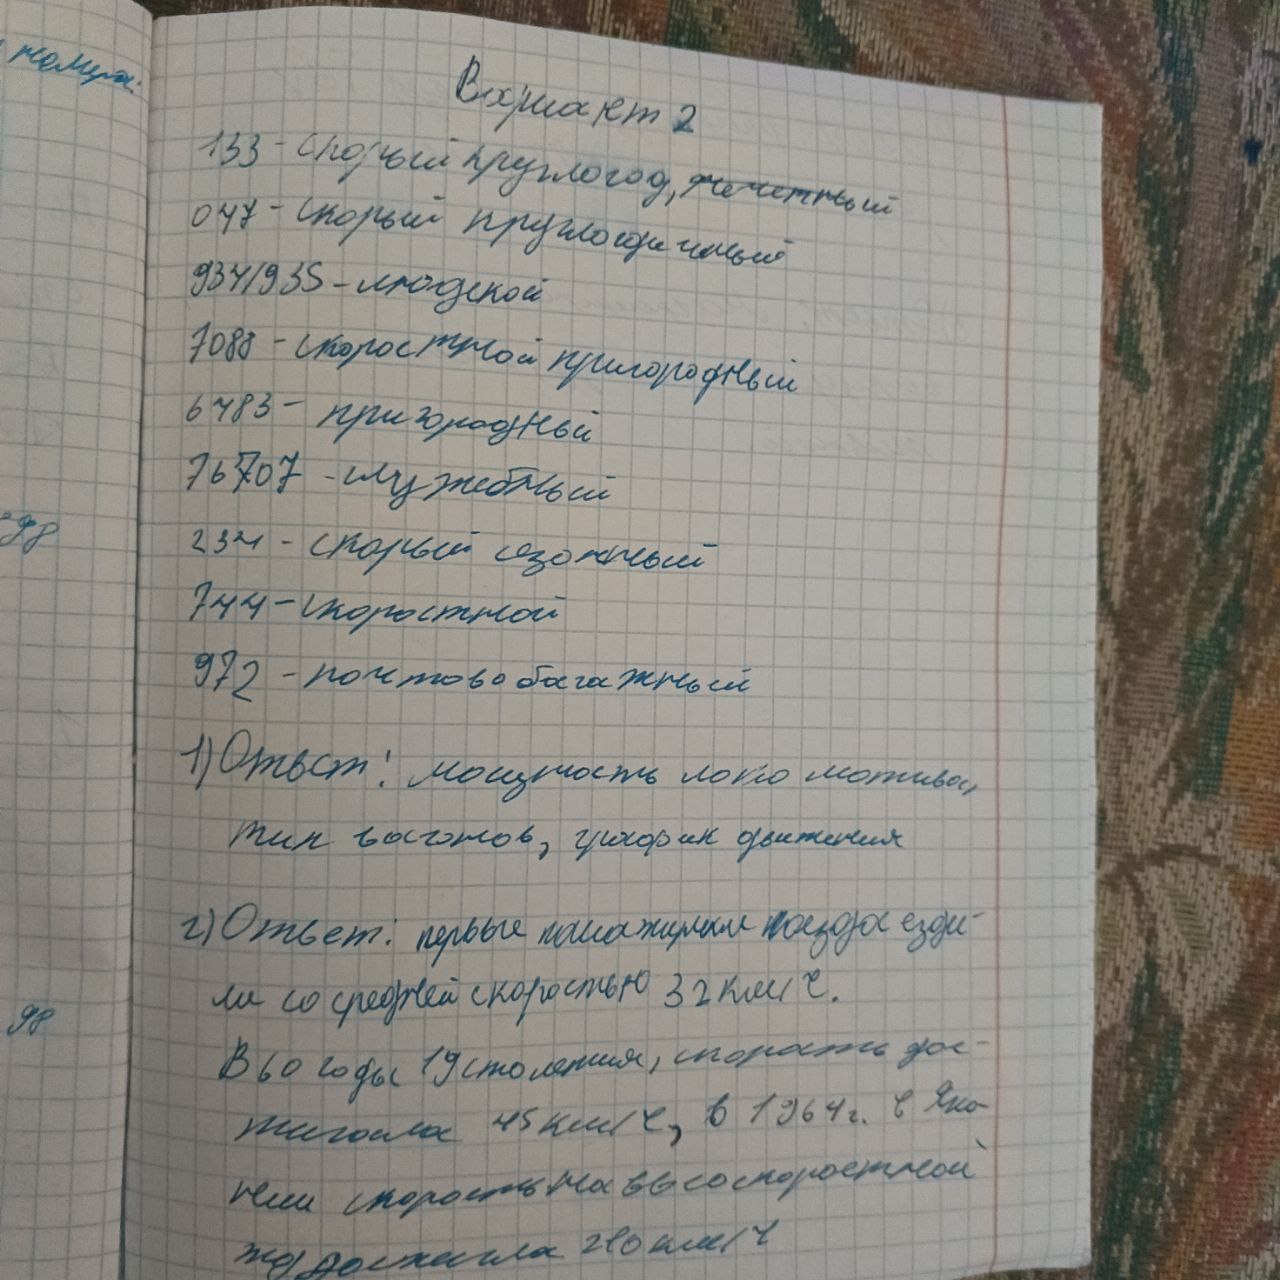 номера:
98
98
Вариант 2
133 - скорый круглогод, нечетный
047 - скорый круглогодичный
934/935 - людской
7088 - скоростной пригородный
6483 - пригородный
76707 - служебный
234 - скорый сезонный
744 - скоростной
972 - почтово багажный
1) Ответ: мощность локомотива,
тип вагонов, график движения
2) Ответ: первые пассажирские поезда езди-
ли со средней скоростью 32 км/ч.
В 60 годы 19 столетия, скорость дос-
тигала 45 км/ч, в 1964 г. в Япо-
нии скорость на высокоскоростной
жд достигла 210 км/ч